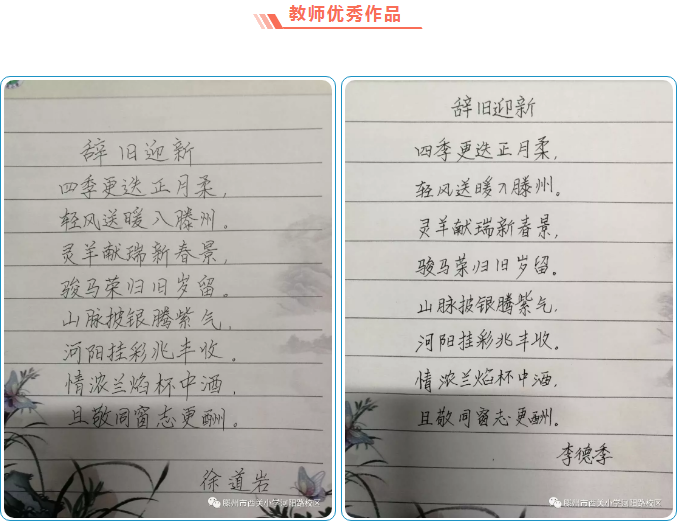 教师优秀作品
辞旧迎新
四季更迭正月柔，
轻风送暖入滕州。
灵羊献瑞新春景，
骏马荣归旧岁留。
山脉披银腾紫气，
河阳挂彩兆丰收。
情浓兰焰杯中酒，
且敬同窗志更酬。
徐道岩
辞旧迎新
四季更迭正月柔，
轻风送暖入滕州。
灵羊献瑞新春景，
骏马荣归旧岁留。
山脉披银腾紫气，
河阳挂彩兆丰收。
情浓兰焰杯中酒，
且敬同窗志更酬。
李德季